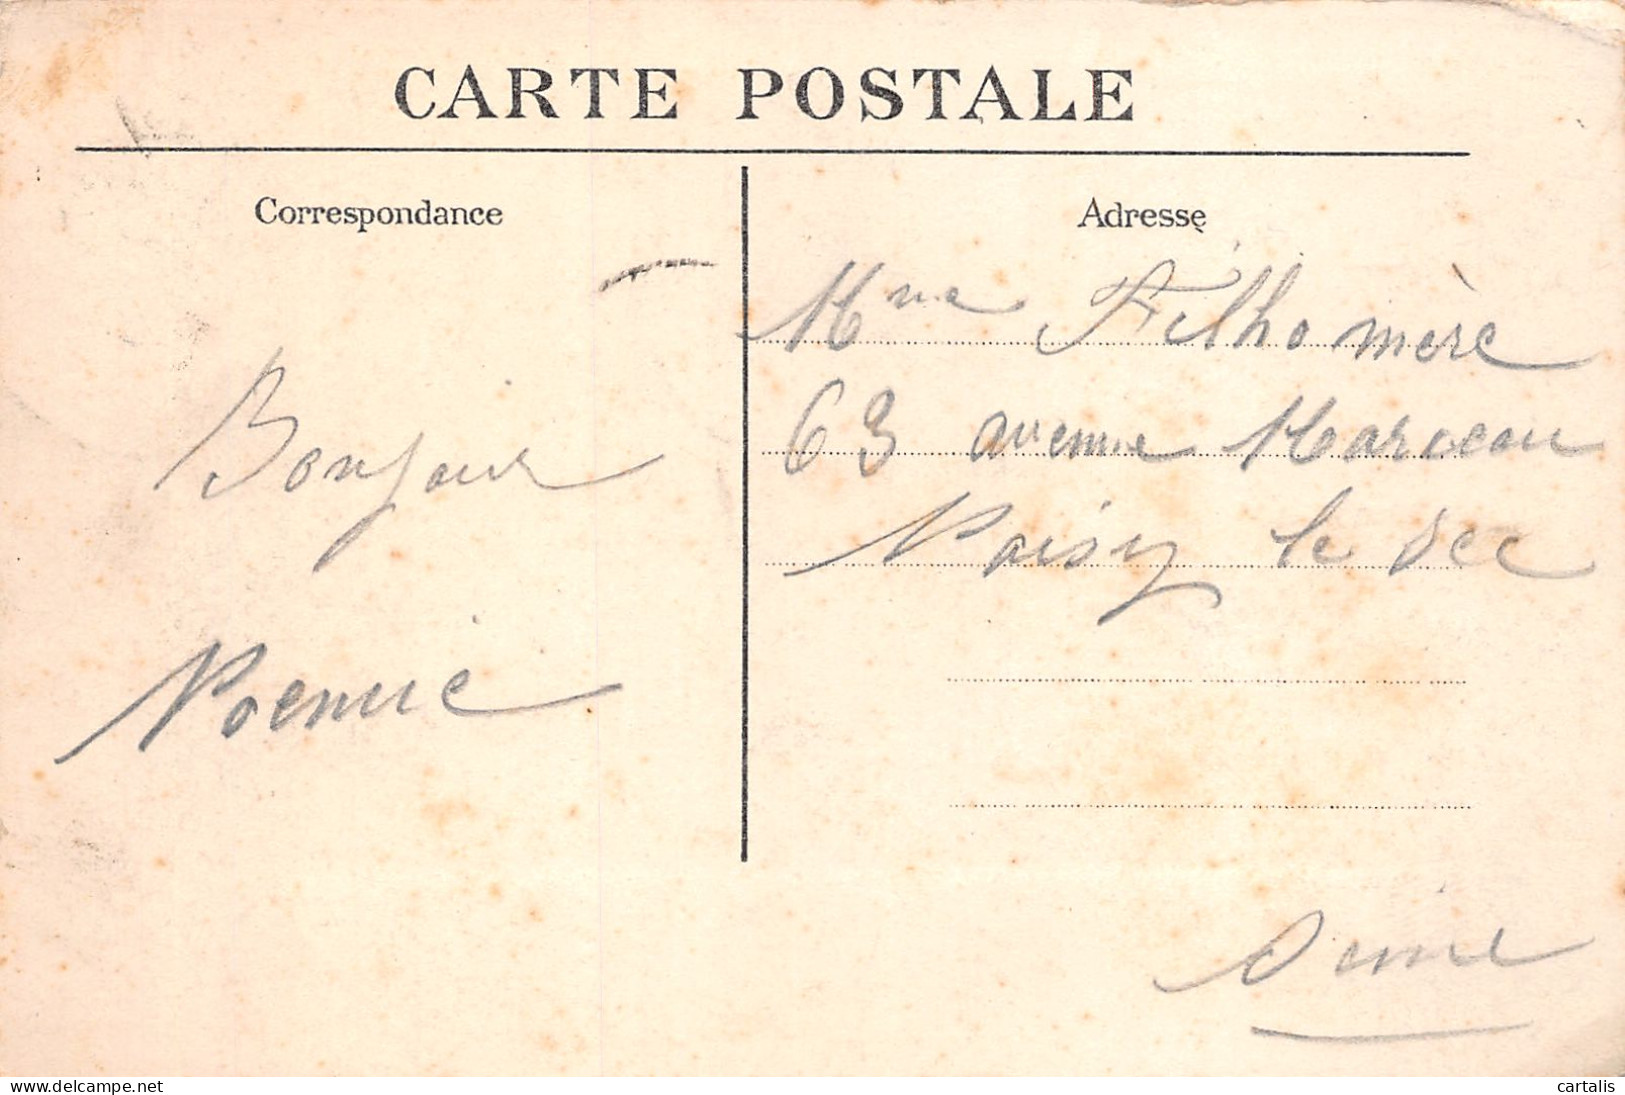 CARTE POSTALE
Correspondance
Adresse
Bonjour
Noemie
Mme Filhomère
63 avenue Marceau
Noisy le Sec
Seine
www.delcampe.net
cartalis